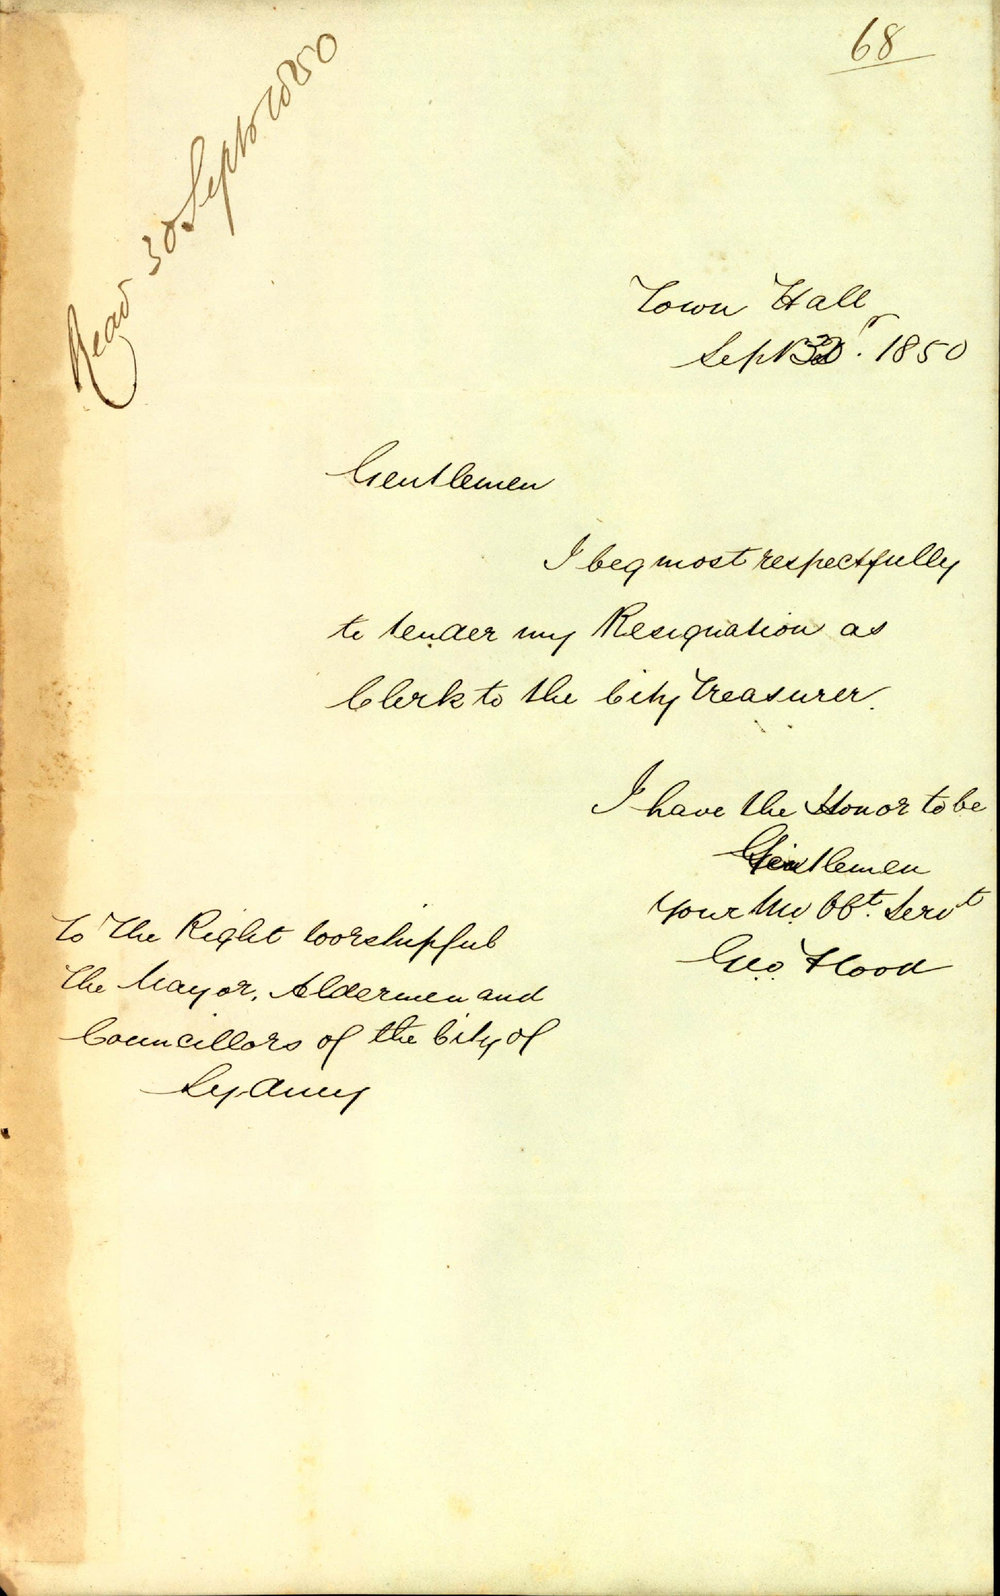 68
Read 30 Septr 1850
Town Hall
Sept 1850
Gentlemen
I beg most respectfully
to tender my Resignation as
Clerk to the City Treasurer.
I have the Honor to be
Gentlemen
Your Mo. Obt. Servt
Geo.
To The Right Worshipful
The Mayor, Aldermen and
Councillors of the City of
Sydney